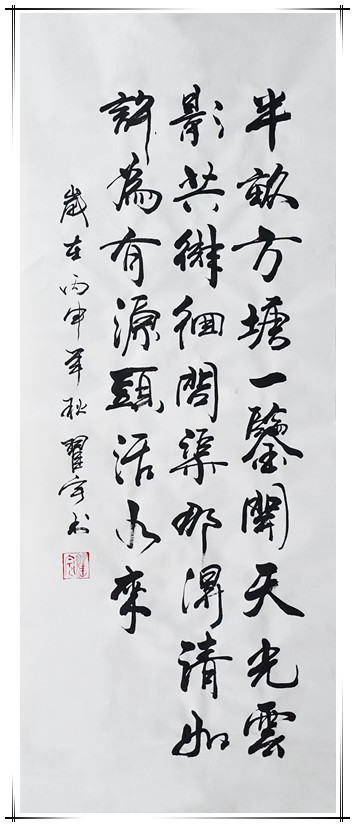 半畝方塘一鑒開天光雲
影共徘徊問渠那得清如
許為有源頭活水來
歲在丙申年秋翟宇书